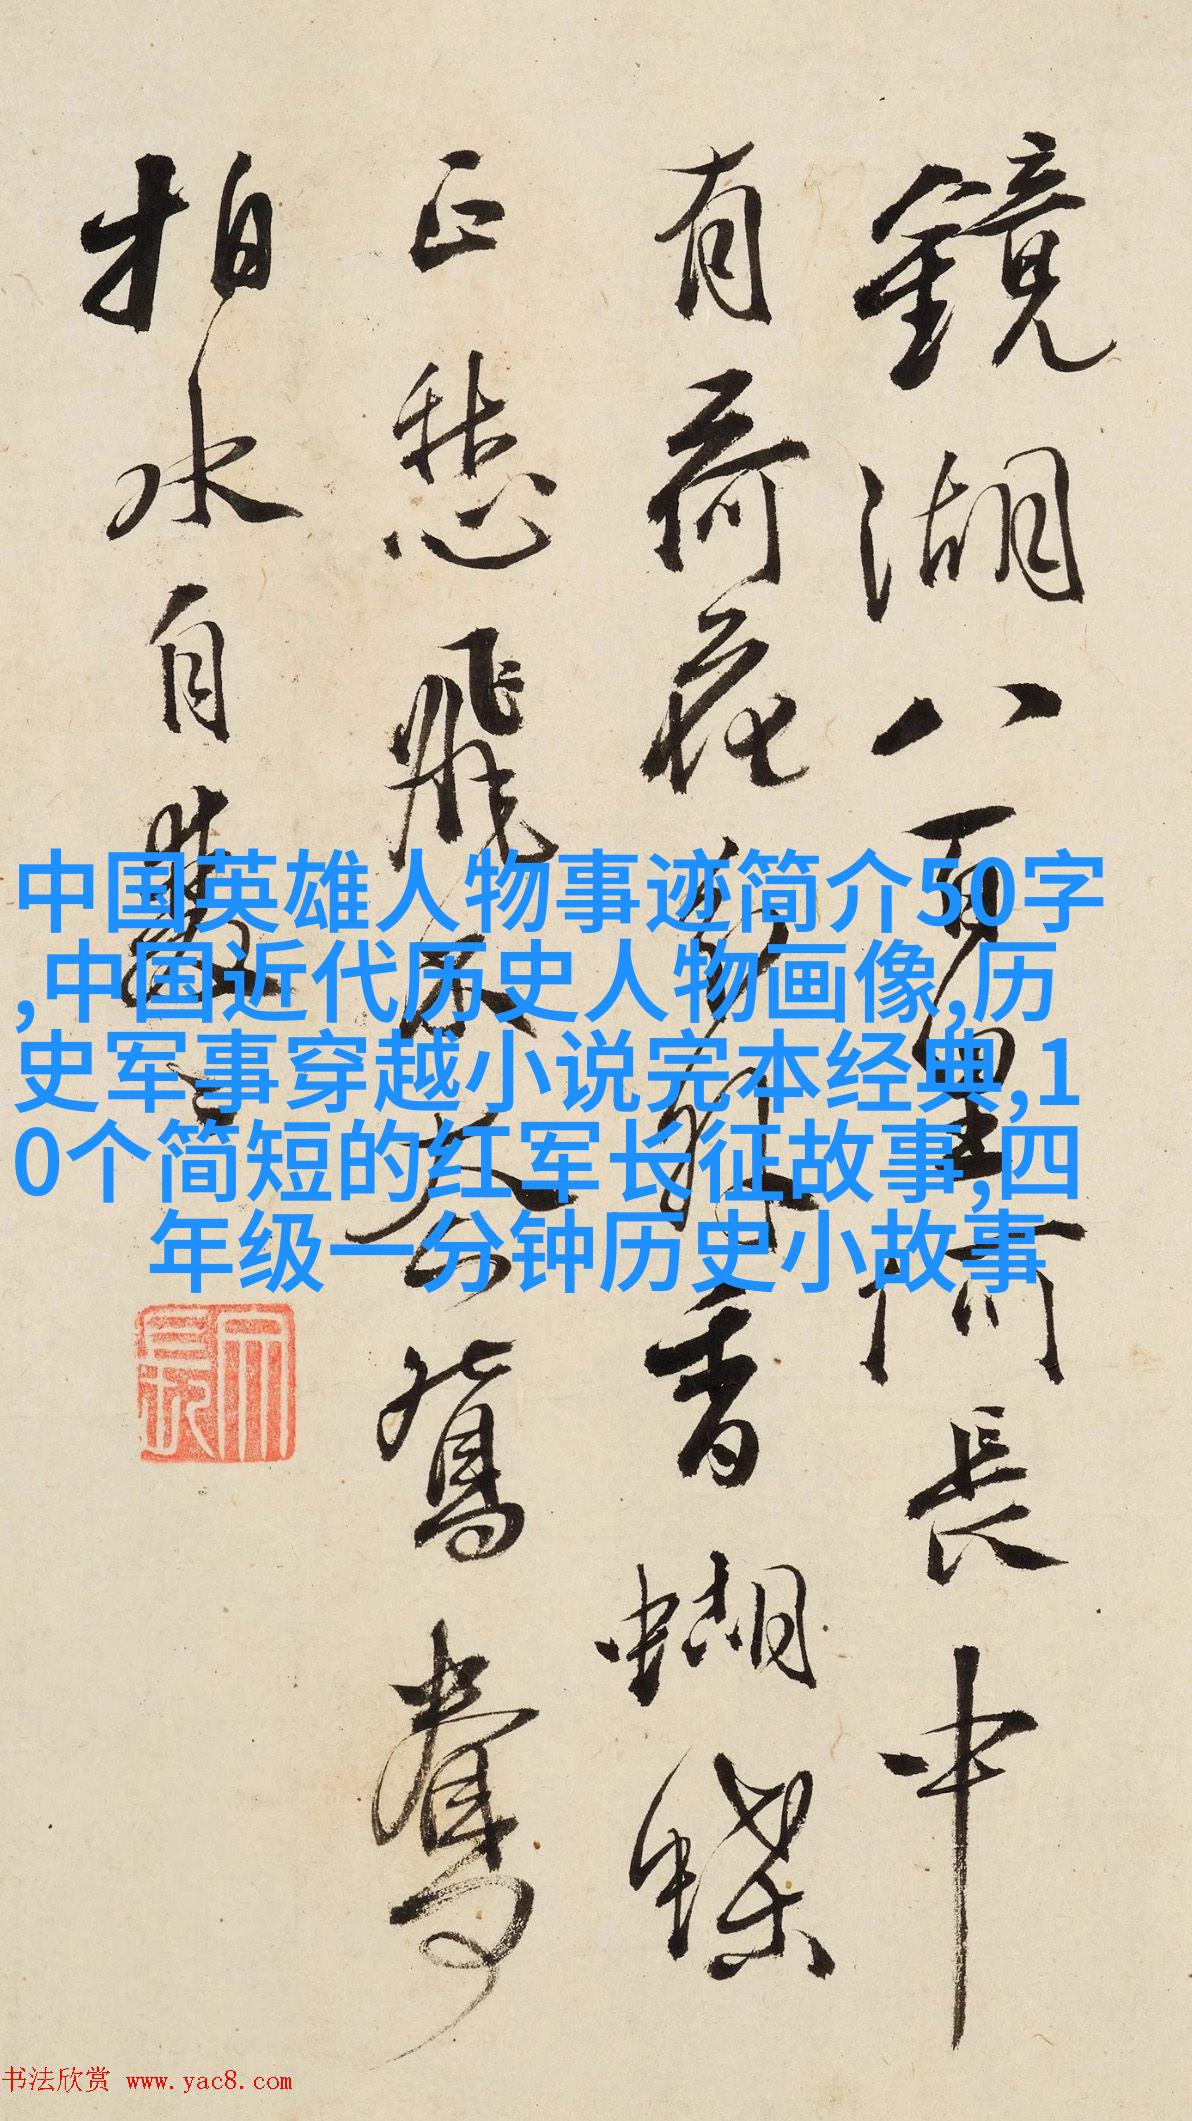 鏡湖八百里何長中
有荷花香蝴蝶
正愁飛不去鴛鴦
拍水自雙
中国英雄人物事迹简介50字
,中国近代历史人物画像,历
史军事穿越小说完本经典,1
0个简短的红军长征故事,四
年级一分钟历史小故事
书法欣赏 www.yac8.com